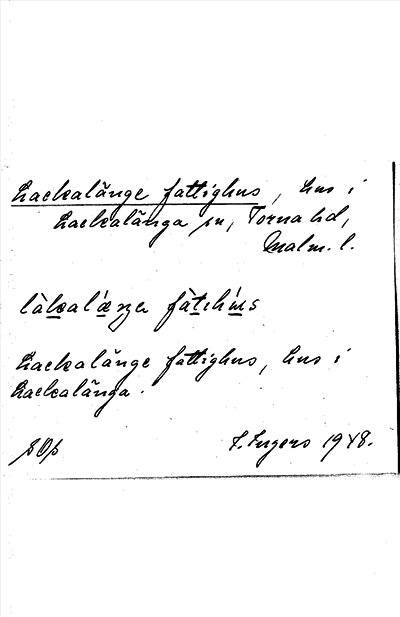 Lackalänge fattighus, hus i
Lackalänga sn, Torna hd,
Malm. l.
làkalǽŋa fàtihús
Lackalänge fattighus, hus i
Lackalänga.
I. Ingers 1948.